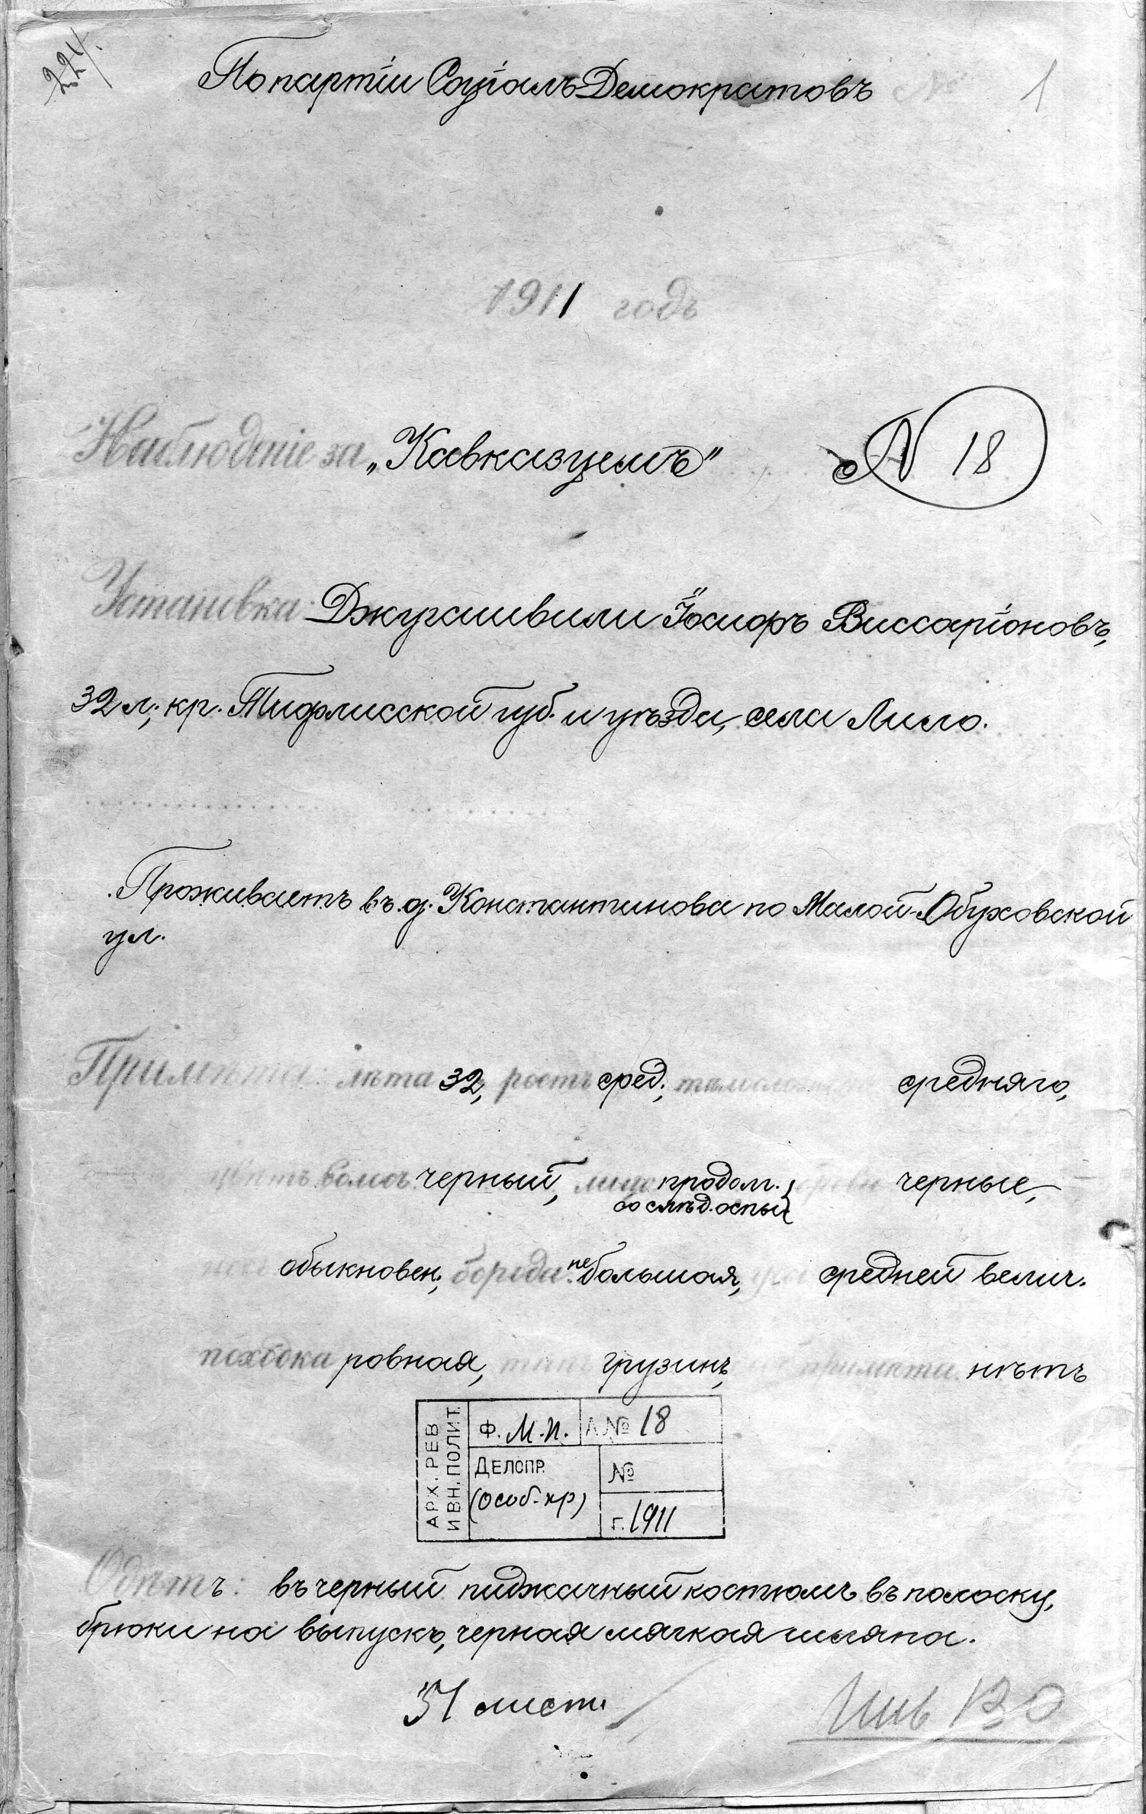 224.
По партіи Соціалъ Демократовъ
1
1911 годъ
Наблюденіе за „Кавказцемъ”
№ 18
Установка: Джугашвили Іосифъ Виссаріоновъ,
32 л., кр. Тифлисской губ. и уѣзда, села Лило.
Проживаетъ въ д. Константинова по Малой-Обуховской
ул.
Примѣты: лѣта 32, ростъ сред., тѣлосло средняго,
цвѣтъ волосъ черный, лицо продолг. черные,
со слѣд. оспы
обыкновен., борода небольшая, средней велич.
походка ровная, типъ грузинъ, примѣты нѣтъ
АРХ. РЕВ
И ВН. ПОЛИТ.
Ф. М.П. Л. № 18
ДЕЛОПР. №
(особ. хр) г. 1911
Одѣтъ: въ черный пиджачный костюмъ въ полоску,
брюки на выпускъ, черная мягкая шляпа.
51 листъ
Инв 130